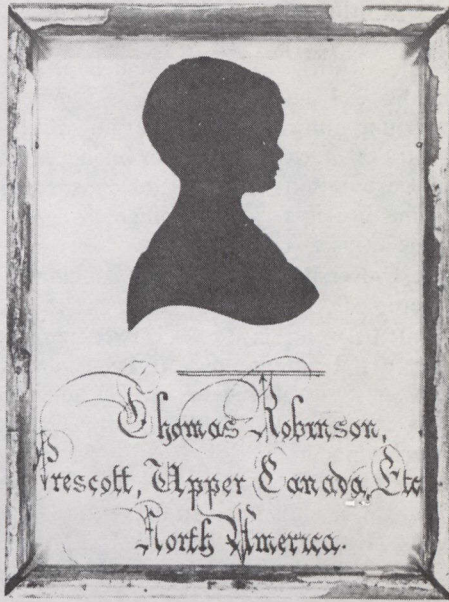 Thomas Robinson,
Prescott, Upper Canada, Etc
North America.